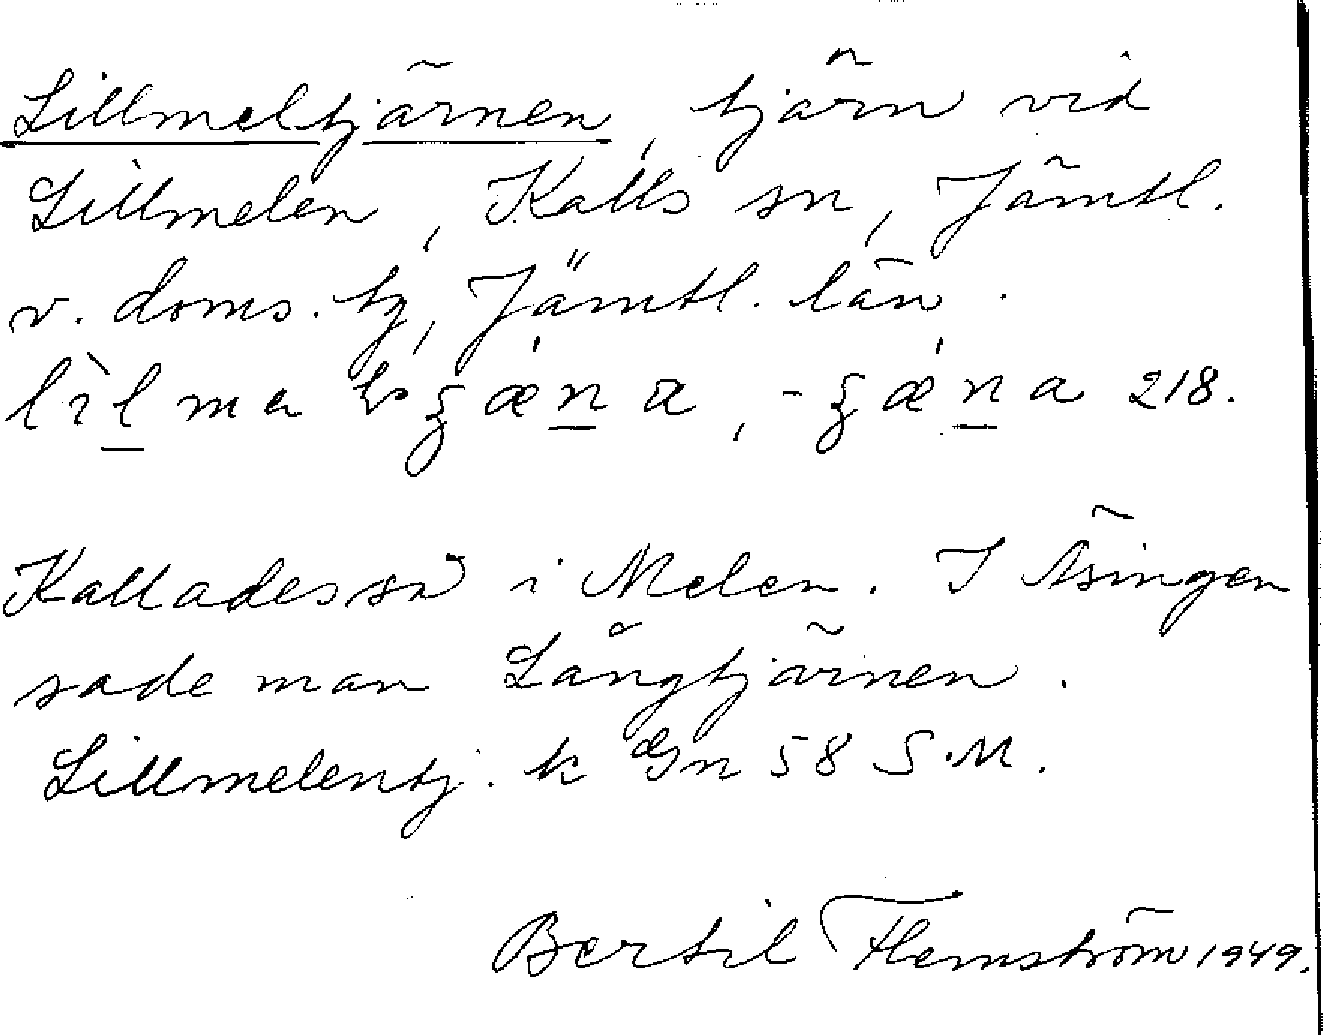 Lillmeltjärnen, tjärn vid
Lillmelen, Kalls sn, Jämtl.
v. doms. tg, Jämtl. län.
Kallades så i Melen. I Äsingen
sade man Långtjärnen.
Lillmelentj. k Gn 58 S.M.
Bertil Flemström 1949.